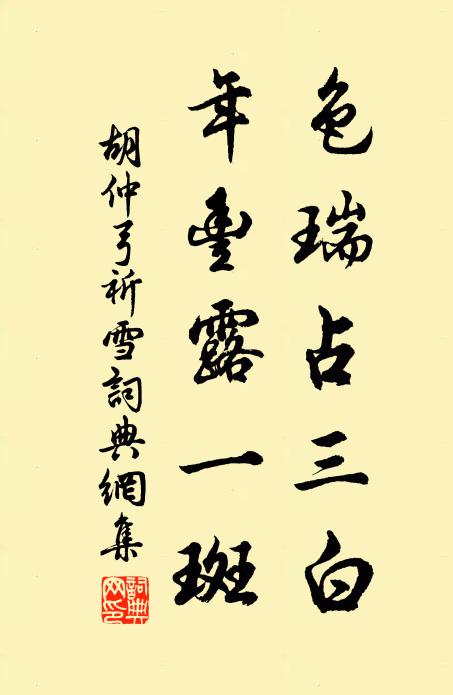 色瑞占三白
年豐露一斑
胡仲弓祈雪詞典網集
詞典網印